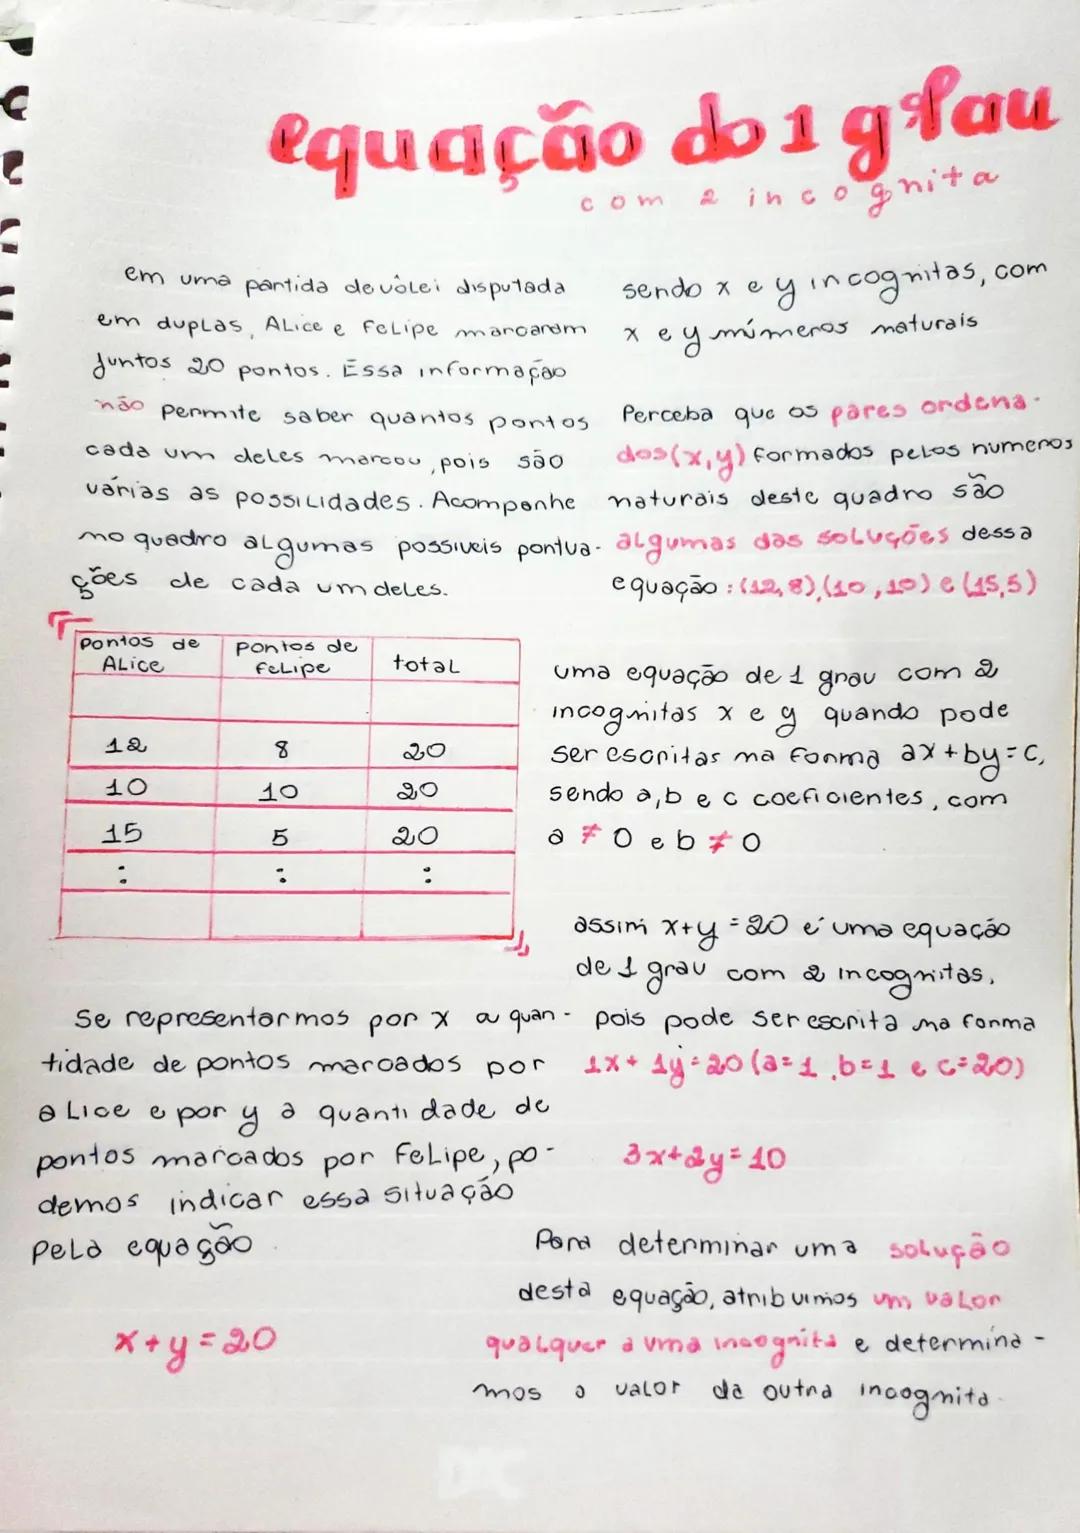 equação do 1 grau
com 2 incognita
em uma partida de vôlei disputada
em duplas, Alice e Felipe marcaram
juntos 20 pontos. Essa informação
não permite saber quantos pontos
cada um deles marcou, pois são
várias as possilidades. Acompanhe
no quadro algumas possiveis pontua-
ções de cada um deles.
pontos de Alice | pontos de Felipe | total
12 | 8 | 20
10 | 10 | 20
15 | 5 | 20
: | : | :
Se representarmos por x a quan-
tidade de pontos marcados por
alice e por y a quantidade de
pontos marcados por Felipe, po-
demos indicar essa situação
pela equação
x+y=20
sendo x e y incognitas, com
x e y números naturais
Perceba que os pares ordena-
dos (x,y) formados pelos numeros
naturais deste quadro são
algumas das soluções dessa
equação: (12,8),(10,10) e (15,5)
uma equação de 1 grau com 2
incognitas x e y quando pode
ser escritas na forma ax+by=c,
sendo a,b e c coeficientes, com
a ≠ 0 e b ≠ 0
assim x+y=20 é uma equação
de 1 grau com 2 incognitas,
pois pode ser escrita na forma
1x+1y=20 (a=1, b=1 e c=20)
3x+2y=10
Para determinar uma solução
desta equação, atribuimos um valor
qualquer a uma incognita e determina-
mos o valor da outra incognita.